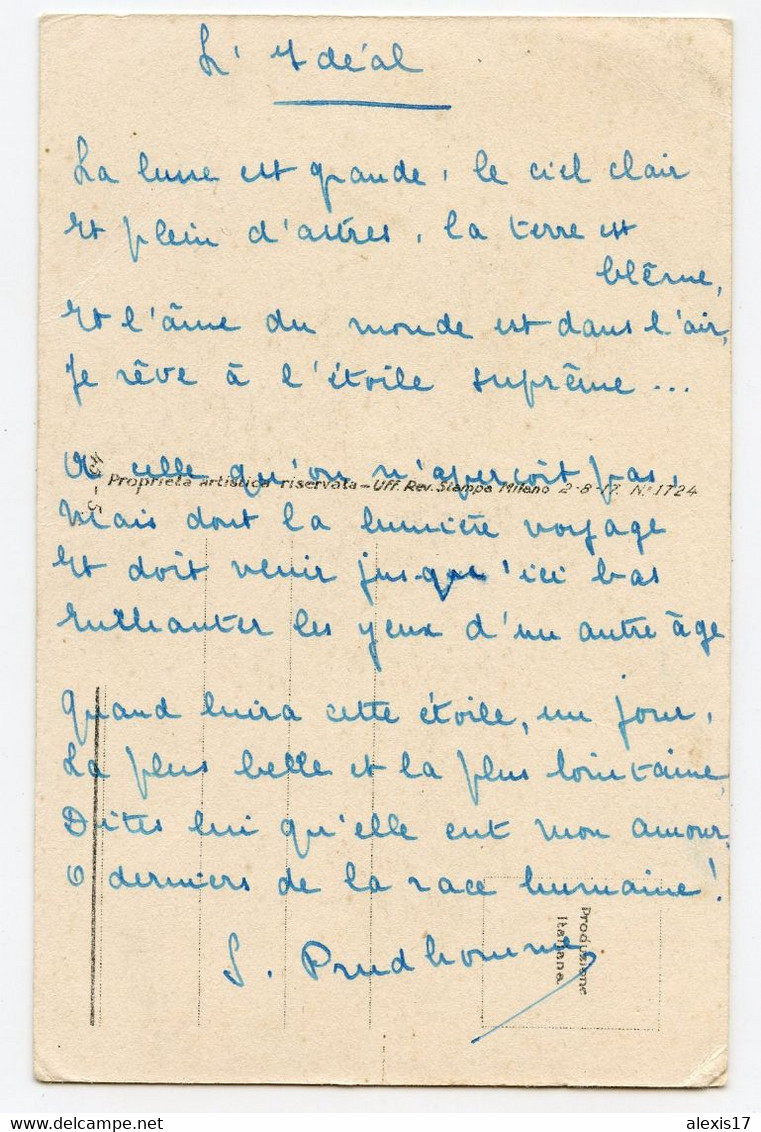 L'Idéal
La lune est grande, le ciel clair
Et plein d'astres, la terre est
blême,
Et l'âme du monde est dans l'air,
Je rêve à l'étoile suprême ...
A celle qu'on n'aperçoit pas,
Proprietà artistica riservata - Uff. Rev. Stampa Milano 2-8-17. No. 1724
Mais dont la lumière voyage
Et doit venir jusque'ici bas
Enchanter les yeux d'un autre âge
Quand luira cette étoile, un jour,
La plus belle et la plus lointaine,
Dites lui qu'elle eut mon amour,
O derniers de la race humaine!
S. Prudhomme
Produzione
Italiana
www.delcampe.net
alexis17